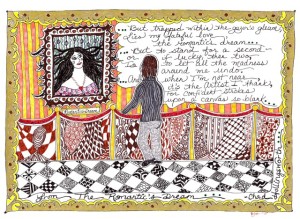 ...But trapped within the gypsy's glare,
lies my fateful love...
the romantic dreamer...
But to stand for a second -
or if lucky then two,
to let all the madness
around me undo,
And when I'm not near,
it's the Artist I thank,
for confident strokes
upon a canvas so blank...
from "The Romantic's Dream"
Chad